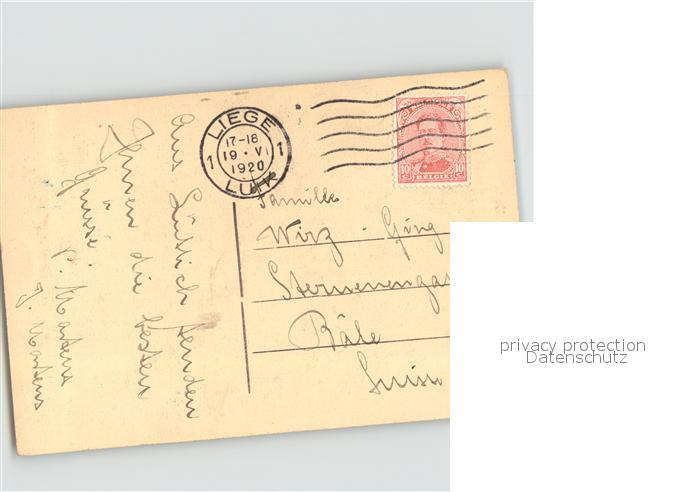 LIEGE
1 17-18 1
19·V
1920
LUIK
BELGIQUE
10 10
BELGIË
Aus Lüttich senden
Ihnen die besten
Grüsse.
P. Martens
J. Martens
Famille
Wirz - Ging
Sternenga
Bâle
Suisse
privacy protection
Datenschutz